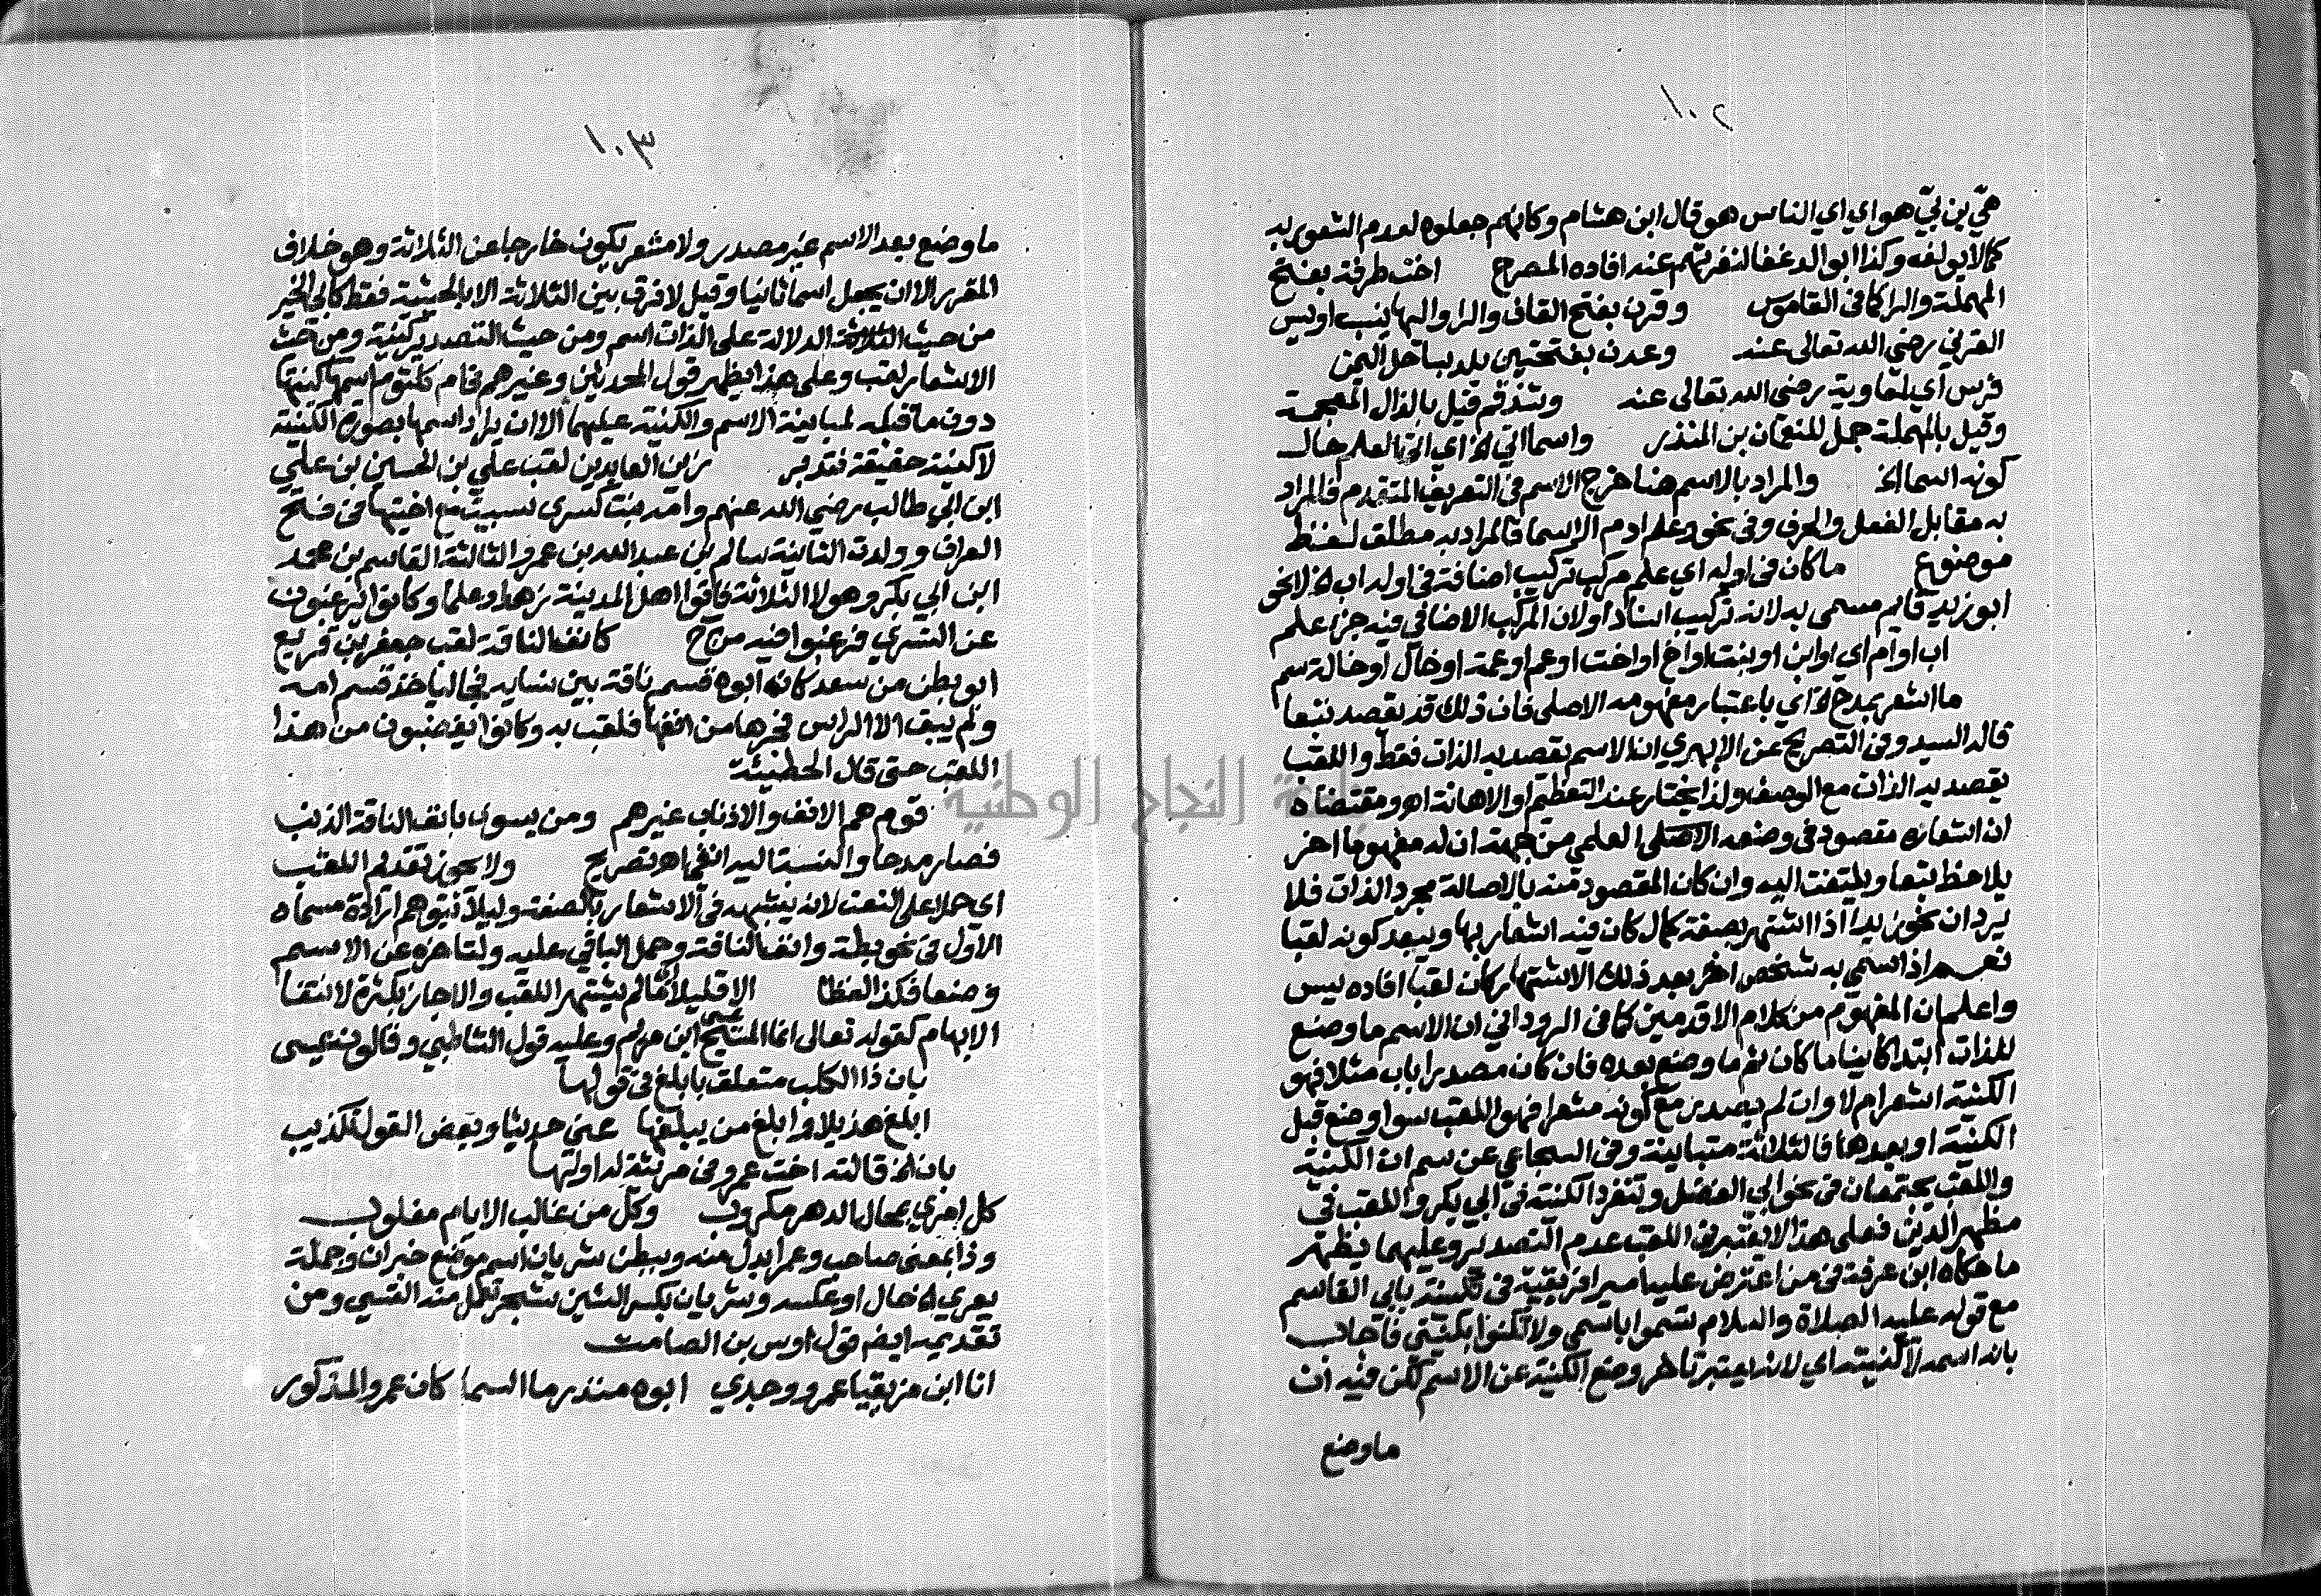 ١٠٢
هي بن بي هو اي اي الناس هو قال ابن هشام وكانهم جعلوه لعدم الشعور به
كما لا يولفه وكذا ابو الدغفا لنفرتهم عنه افاده المصرح اخت طرفة بفتح
المهملة والرا كما في القاموس وقرن بفتح القاف والرا واليها ينسب اويس
القرني رضي الله تعالى عنه وعدن بفتحتين بلد بساحل اليمن
فرس اي لمعاوية رضي الله تعالى عنه وشذقم قيل بالذال المعجمة
وقيل بالمهملة جمل للنعمان بن المنذر واسما اتي الخ اي اتي العلم حال
كونه اسما الخ والمراد بالاسم هنا خرج الاسم في التعريف المتقدم فالمراد
به مقابل الفعل والحرف وفي نحو وعلم ادم الاسما فالمراد به مطلق لفظ
موضوع ما كان في اوله اي علم مركب تركيب اضافة في اوله اب الخ لا نحو
ابو زيد قايم مسمى به لانه تركيب اسناد او لان المركب الاضافي فيه جزء علم
اب او ام اي او ابن او بنت او اخ او اخت او عم او عمة او خال او خالة سم
ما اشعر بمدح الخ اي باعتبار مفهومه الاصلي فان ذلك قد يقصد تبعا
قاله السيد وفي التصريح عن الابهري ان الاسم يقصد به الذات فقط واللقب
يقصد به الذات مع الوصف ولذا يختار عند التعظيم او الاهانة اهـ ومقتضاه
ان اشعاره مقصود في وضعه الاصلي العلمي من جهة ان له مفهوما اخر
يلاحظ تبعا ويلتفت اليه وان كان المقصود منه بالاصالة مجرد الذات فلا
يرد ان نحو زيد اذا اشتهر بصفة كمال كان فيه اشعار بها ويبعد كونه لقبا
نعم اذا سمي به شخص اخر بعد ذلك الاشتهار كان لقبا افاده يس
واعلم ان المفهوم من كلام الاقدمين كما في الروداني ان الاسم ما وضع
للذات ابتدا كاينا ما كان ثم ما وضع بعده فان كان مصدرا باب مثلا فهو
الكنية اشعر ام لا وان لم يصدر مع كونه مشعرا فهو اللقب سوا وضع قبل
الكنية او بعدها فالثلاثة متباينة وفي السجاعي عن سم ان الكنية
واللقب يجتمعان في نحو ابي الفضل وتنفرد الكنية في ابي بكر واللقب في
مظهر الدين فعلى هذا لا يعتبر في اللقب عدم التصدير وعليهما يظهر
ما حكاه ابن عرفة في من اعترض عليه امير افريقية في تكنيته بابي القاسم
مع قوله عليه الصلاة والسلام تسموا باسمي ولا تكنوا بكنيتي فاجاب
بانه اسمه لا كنيته اي لانه يعتبر تاخر وضع الكنية عن الاسم لكن فيه ان
ما وضع
١٠٣
ما وضع بعد الاسم غير مصدر ولا مشعر يكون خارجا عن الثلاثة وهو خلاف
المقرر الا ان يجعل اسما ثانيا وقيل لا فرق بين الثلاثة الا بالحيثية فقط كابي الخير
من حيث الدلالة على الذات اسم ومن حيث التصدير كنية ومن حيث
الاشعار لقب وعلى هذا يظهر قول المحدثين وغيرهم في ام كلثوم اسمها كنيتها
دون ما قبله لمباينة الاسم والكنية عليهما الا ان يراد اسمها بصورة الكنية
لا كنية حقيقة فتدبر زين العابدين لقب علي بن الحسين بن علي
ابن ابي طالب رضي الله عنهم وامه بنت كسرى سبيت مع اختيها في فتح
العراق وولدت الثانية سالم بن عبد الله بن عمر والثالثة القاسم بن محمد
ابن ابي بكر وهولا الثلاثة فاقوا اهل المدينة زهدا وعلما وكانوا يرغبون
عن التسري فرغبوا فيه من ح كانف الناقة لقب جعفر بن قريع
ابو بطن من سعد كان ابوه قسم ناقة بين نسايه فجا لياخذ قسم امه
ولم يبق الا الراس فجرها من انفها فلقب به وكانوا يغضبون من هذا
اللقب حتى قال الحطيئة
قوم هم الانف والاذناب غيرهم ومن يسوى بانف الناقة الذنب
فصار مدحا والنسبة اليه انفي اهـ تصريح ولا يجوز تقديم اللقب
اي حملا على النعت لانه يشبهه في الاشعار بالصفة وليلا يتوهم ارادة مسماه
الاول في نحو بطة وانف الناقة وحمل الباقي عليه ولتاخره عن الاسم
وضعا فكذا لفظا الا قليلا ما لم يشتهر اللقب والا جاز بكثرة لانتفا
الابهام كقوله تعالى انما المسيح عيسى ابن مريم وعليه قول الشاطبي وقالون عيسى
بان ذا الكلب متعلق بابلغ في قولها
ابلغ هذيلا وابلغ من يبلغها عني حديثا وبعض القول تكذيب
بان الخ قالته اخت عمرو في مرثية له اولها
كل امرئ بمحال الدهر مكروب وكل من غالب الايام مغلوب
وذا بمعنى صاحب وعمرا بدل منه وببطن شريان اسم موضع خبر ان وجملة
يعوي الخ حال او عكسه وشريان بكسر الشين شجر تعمل منه القسي ومن
تقديمه ايضا قول اوس بن الصامت
انا ابن مزيقيا عمرو وجدي ابوه منذر ما السما كان عمرو المذكور
جامعة النجاح الوطنية